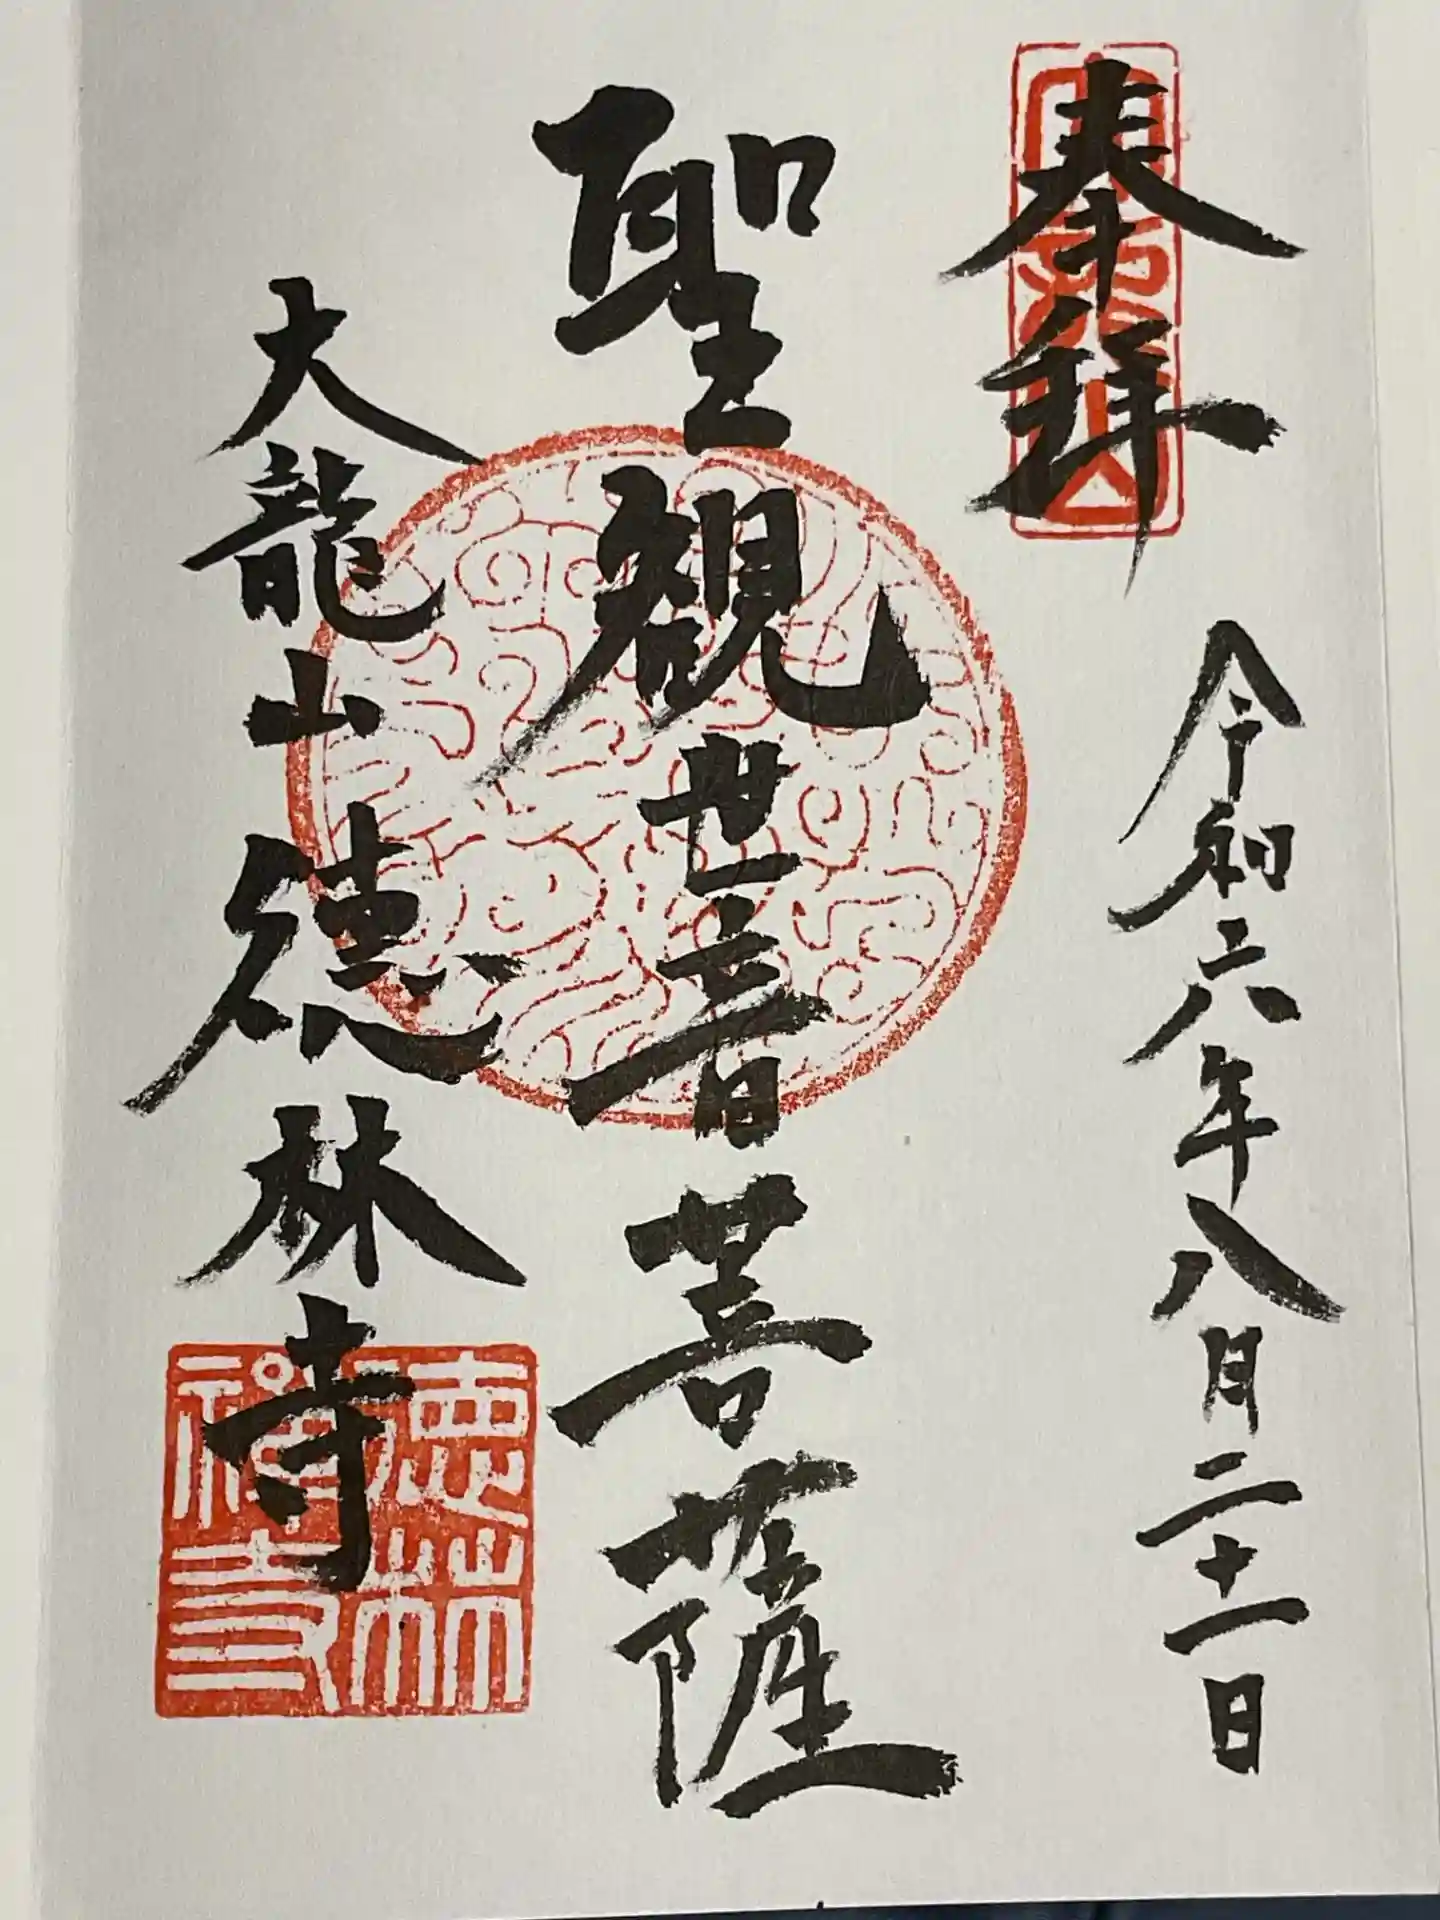 奉拝
令和六年八月二十一日
聖観世音菩薩
大龍山徳林寺
徳林
禅寺